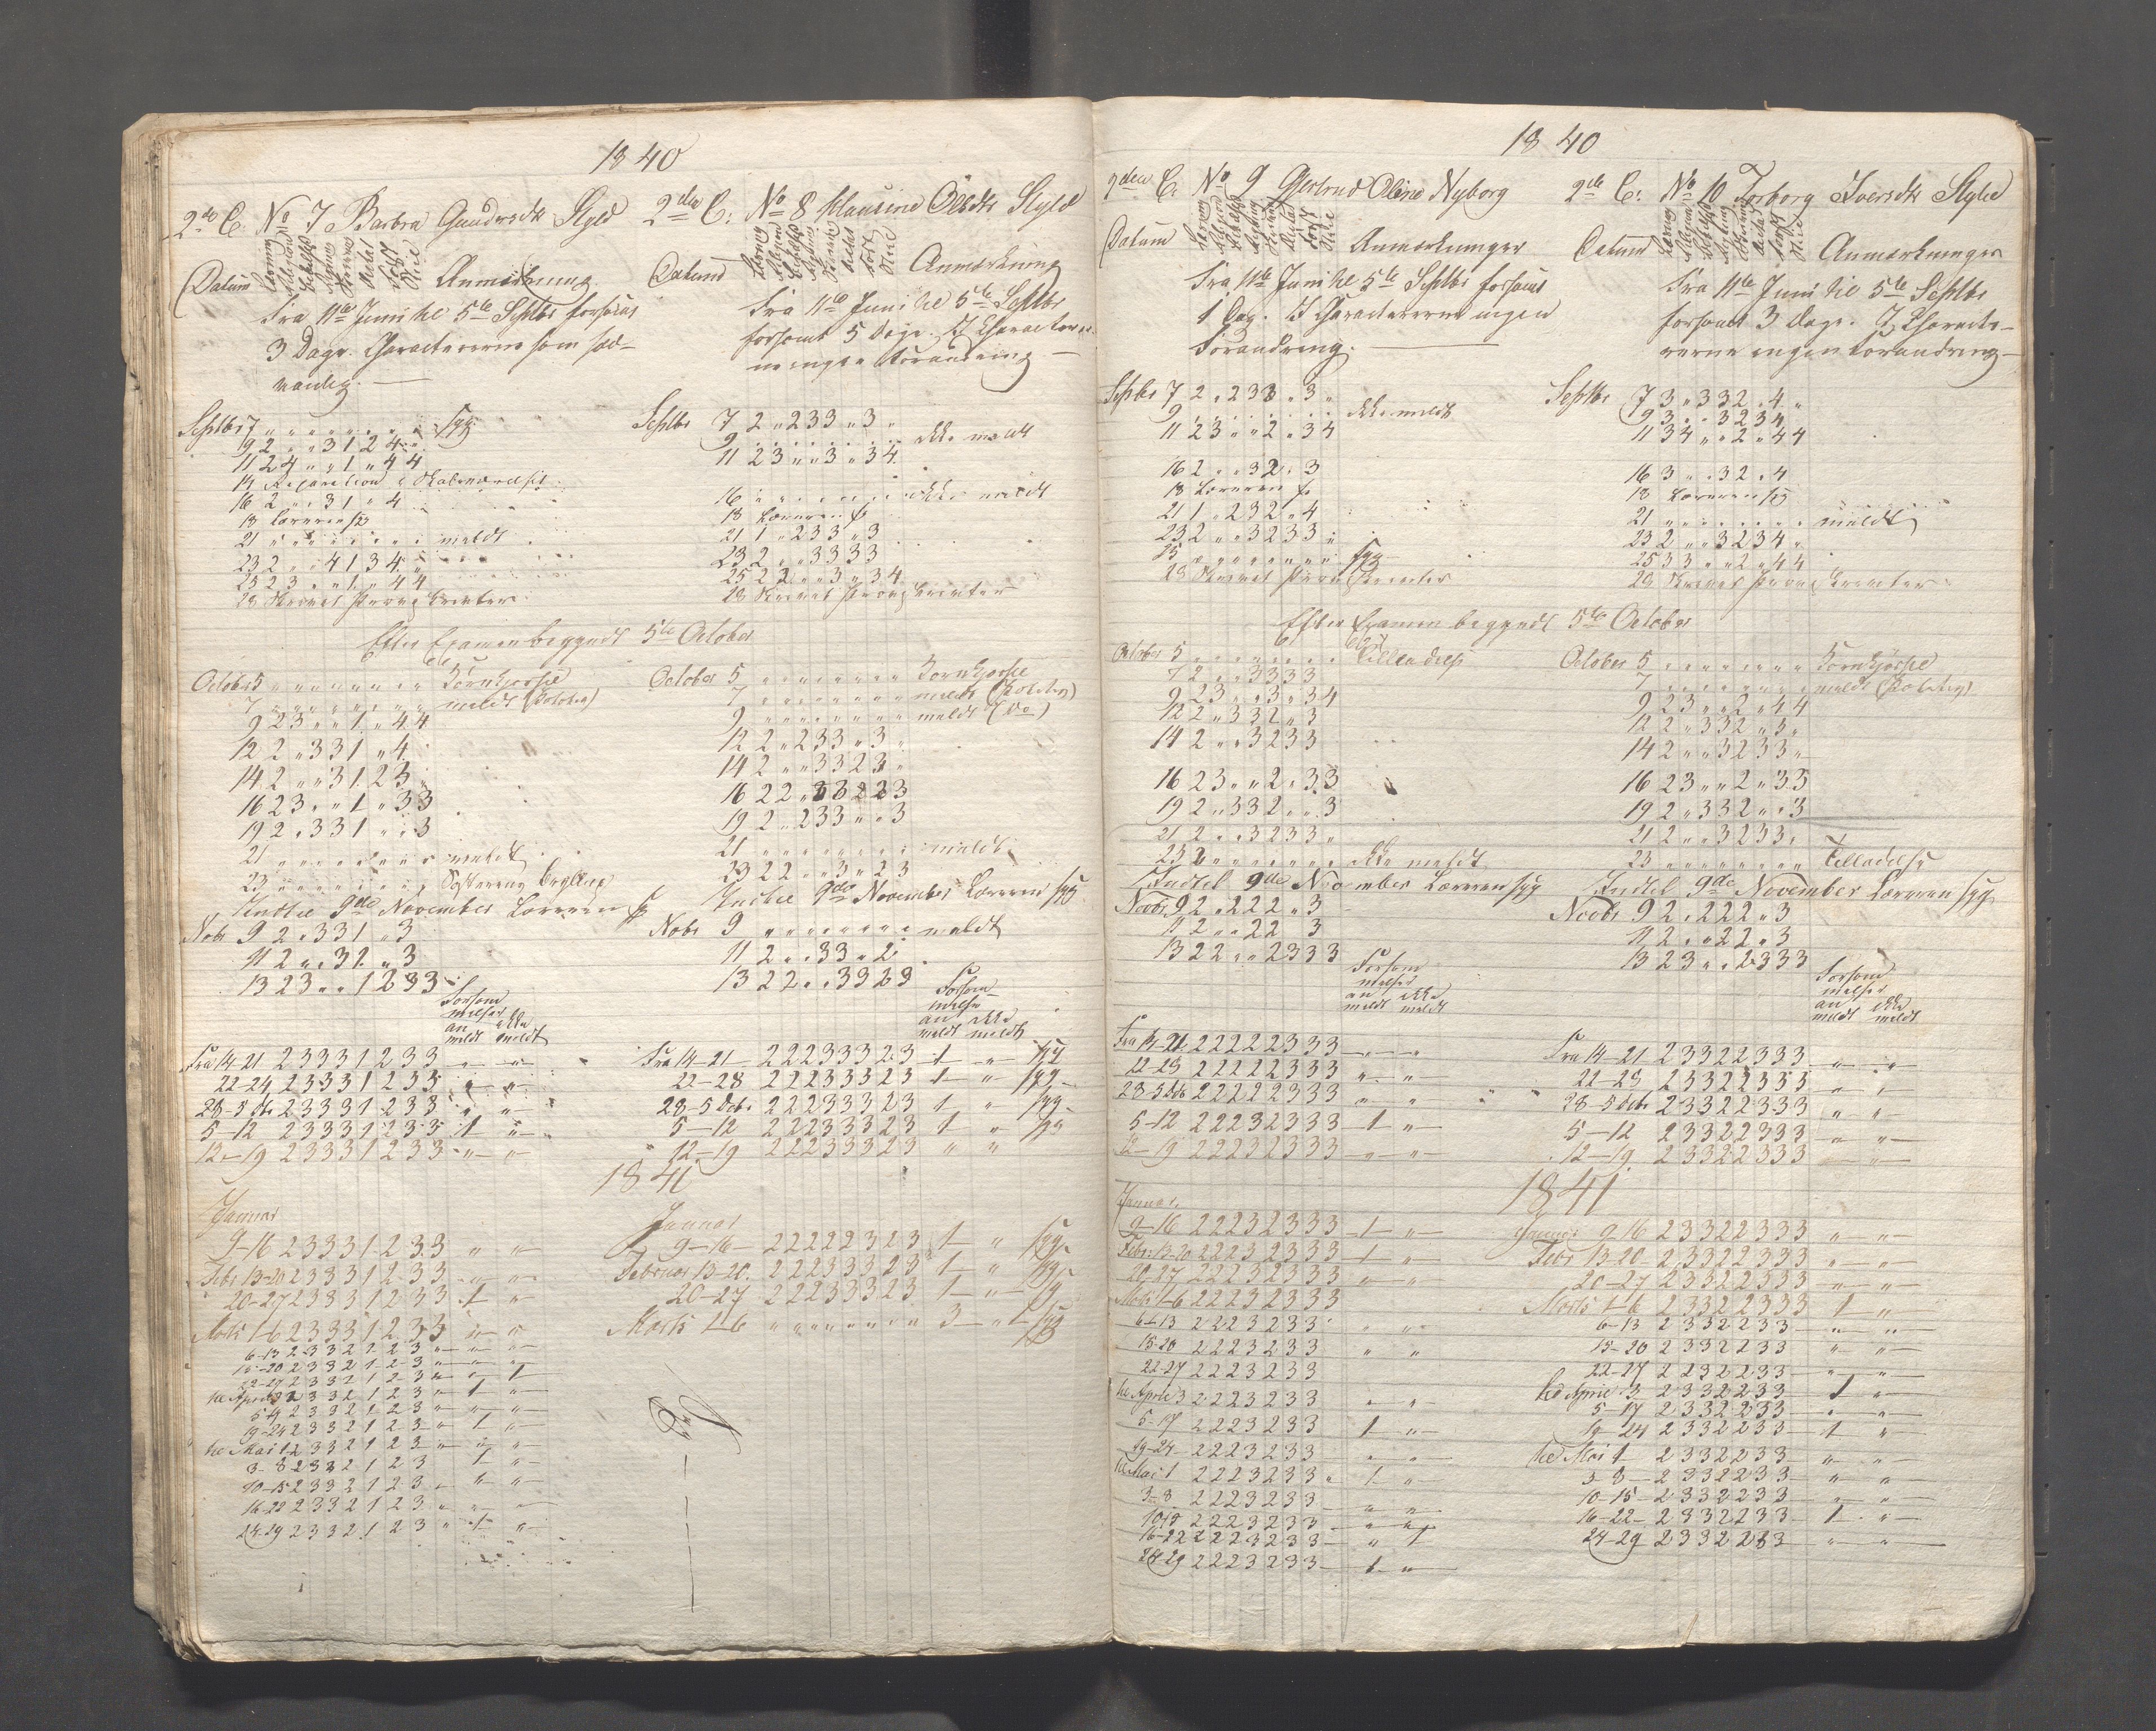 1840
2de C. No 7 Barbra Gundersdtr Skyld
Datum Anmærkning
Fra 11te Juni til 5te Septbr forsømt
3 Dage. Characteererne som sæd-
vanlig. —
Septbr 7 „ „ „ „ „ „ „ „ syg
9 2 „ „ 3 1 2 4 „
11 2 4 „ „ 1 „ 4 4
14 Reparation
16 2 „ „ 3 1 „ 4
18 Læreren syg
21 „ „ „ „ „ „ „ „ meldt
23 2 „ „ 4 1 3 4 „
25 2 3 „ „ 1 „ 4 4
28 Skrevet Prøveskrivter
Efter Examen begyndt 5te October
October 5 „ „ „ „ „ „ „ „ Kornkjørsel
7 „ „ „ „ „ „ „ „ meldt (Poteter)
9 2 3 „ „ 1 „ 4 4
12 2 „ 3 3 1 „ 4
14 2 „ „ 3 1 2 3 „
16 2 3 „ „ 1 „ 3 3
19 2 „ 3 3 1 „ „ 3
21 „ „ „ „ „ „ „ „ meldt
23 „ „ „ „ „ „ „ „ Søsterens Bryllup
Indtil 9de November Læreren syg
Nobr 9 2 „ 3 3 1 „ 3
11 2 „ „ 3 1 „ 3
13 2 3 „ „ 1 2 3 3
Forsøm
melser
an ikke
meldt meldt
Fra 14-21 2 3 3 3 1 2 3 3 „ „
22-24 2 3 3 3 1 2 3 3 „ „
28-5 Dbr 2 3 3 3 1 2 3 3 „ „
5-12 2 3 3 3 1 2 3 3 1 „
12-19 2 3 3 3 1 2 3 3 „ „
1841
Januar
9-16 2 3 3 3 1 2 3 3 „ „
Febr 13-20 2 3 3 3 1 2 3 3 „ „
20-27 2 3 3 3 1 2 3 3 1 „
Marts 1-6 2 3 3 3 1 2 3 3 „ „
6-13 2 3 3 2 1 2 3 „ „ „
15-20 2 3 3 2 1 2 3 „ „ „
22-27 2 3 3 2 1 2 3 „ „ 1
til April 3 2 3 3 2 1 2 3 „ 1 „
5-17 2 3 3 2 1 2 3 „ „ „
19-24 2 3 3 2 1 2 3 „ 1 „
til Mai 1 2 3 3 2 1 2 3 „ „ „
3-8 2 3 3 2 1 2 3 1 „
10-15 2 3 3 2 1 2 3 „ „ „
16-22 2 3 3 2 1 2 3 „ „ „
24-29 2 3 3 2 1 2 3 „ 1 „
2den C: No 8 Klausine Olesdtr Skyld
Datum Anmærkning
Fra 11te Juni til 5te Septbr
forsømt 5 Dage. I Character
ne ingen Forandring —
Septbr 7 2 „ 2 3 3 „ 3 „
9 „ „ „ „ „ „ „ „ ikke meldt
11 2 3 „ „ 3 „ 3 4
16 „ „ „ „ „ „ „ „ ikke meldt
18 Læreren syg
21 1 „ 2 3 3 „ 3
23 2 „ „ 3 3 3 3
25 2 2 „ „ 3 „ 3 4
28 Skrevet Prøveskrivter
October 5 „ „ „ „ „ „ „ „ Kornkjørsel
7 „ „ „ „ „ „ „ „ meldt (Poteter)
9 „ „ „ „ „ „ „ „ meldt (Do)
12 2 „ 2 3 3 „ 3 „
14 2 „ „ 3 3 2 3 „
16 2 2 „ 3 3 2 3 3
19 2 „ 2 3 3 „ „ 3
21 „ „ „ „ „ „ „ „ meldt
23 2 2 „ „ 3 „ 2 3
Indtil 9de November Læreren syg
Nobr 9 „ „ „ „ „ „ „ „ meldt
11 2 „ „ 3 3 „ 2
13 2 2 „ „ 3 3 2 3
Forsøm
melse
an ikke
meldt meldt
Fra 14-21 2 2 2 3 3 3 2 3 1 „ syg
22-28 2 2 2 3 3 3 2 3 1 „ syg
28-5 Decbr 2 2 2 3 3 3 2 3 1 „ syg
5-12 2 2 2 3 3 3 2 3 1 „ syg
12-19 2 2 2 3 3 3 2 3 „ „
Januar
9-16 2 2 2 2 2 3 2 3 1 „ syg
Februar 13-20. 2 2 2 3 3 3 2 3 1 „ syg
20-27 2 2 2 3 3 3 2 3 1 „ syg
Marts 1-6 „ „ „ „ „ „ „ „ 3 „ syg
1840
2den C. No 9 Gertrud Oline Nyborg
Datum Anmærkninger
Fra 11te Juni til 5te Septbr forsømt
1 Dag. I Characteererne ingen
Forandring. —
Septbr 7 2 „ 2 3 3 „ 3 „
9 „ „ „ „ „ „ „ „ ikke meldt
11 2 3 „ „ 2 „ 3 4
16 2 „ „ 3 2 „ 3
18 Læreren s.
21 1 „ 2 3 2 „ 4
23 2 „ „ 3 2 3 3 „
25 „ „ „ „ „ „ „ „ syg
28 Skrevet Prøveskrivter
Efter Examen begyndt 5te October
October 5 „ „ „ „ „ „ „ „ Tilladelse
7 2 „ „ 3 3 3 3
9 2 3 „ „ 3 „ 3 4
12 2 „ 3 3 2 „ 3
14 2 „ „ 3 2 3 3
16 2 3 „ „ 2 „ 3 3
19 2 „ 3 3 2 „ „ 3
21 2 „ „ 3 2 3 3 „
23 2 „ „ „ „ „ „ „ ikke meldt
Indtil 9de November Læreren syg
Novbr. 9 2 „ 2 2 2 „ 3
11 2 „ „ 2 2 3
13 2 2 „ „ 2 3 3 3
Forsøm
melser
an ikke
meldt meldt
Fra 14-21 2 2 2 2 2 3 3 3 „ „
22-28 2 2 2 2 2 3 3 3 „ „
28-5 Dbr 2 2 2 2 2 3 3 3 „ „
5-12 2 2 2 3 2 3 3 3 1 „
12-19 2 2 2 3 2 3 3 3 „ „
Januar.
9-16 2 2 2 3 2 3 3 3 1 „
Febr. 13-20 2 2 2 3 2 3 3 3 1 „
20-27 2 2 2 3 2 3 3 3 „ „
Marts 1-6 2 2 2 3 2 3 3 3
6-13 2 2 2 3 2 3 3 „ „ „
15-20 2 2 2 3 2 3 3 „ „
22-27 2 2 2 3 2 3 3
til April 3 2 2 2 3 2 3 3 „ „
5-17 2 2 2 3 2 3 3 1 „
19-24 2 2 2 3 2 3 3 „ „
til Mai 1 2 2 2 3 2 3 3 „ 1 „
3-8 2 2 2 3 2 3 3 „ „
10-15 2 2 2 3 2 3 3 „ „
16-22 2 2 2 3 2 3 3 „ 1
24-29 2 2 2 3 2 3 3 1 „
2de C: No 10 Torborg Iversdtr Skyld
Datum Anmærkninger
Fra 11te Juni til 5te Septbr
forsømt 3 Dage. I Characte-
rerne ingen Forandring —
Septbr 7 3 „ 3 3 2 „ 4 „
9 3 „ „ 3 2 3 4
11 3 4 „ „ 2 „ 4 4
16 3 „ „ 3 2 „ 4
18 Læreren syg
21 „ „ „ „ „ „ „ „ meldt
23 2 „ „ 3 2 3 4 „
25 3 3 „ „ 2 „ 4 4
28 Skrevet Prøveskrivter
October 5 „ „ „ „ „ „ „ „ Kornkjørsel
7 „ „ „ „ „ „ „ „ meldt (Poteter)
9 2 3 „ „ 2 „ 4 4
12 2 „ 3 3 2 „ 3 „
14 2 „ „ 3 2 3 3 „
16 2 3 „ „ 2 „ 3 3
19 2 „ 3 3 2 „ „ 3
21 2 „ „ 3 2 3 3 „
23 „ „ „ „ „ „ „ „ Tilladelse
Indtil 9de November Læreren syg
Novbr 9 2 „ 2 2 2 „ 3
11 2 „ „ 2 2 „ 3
13 2 3 „ „ 2 3 3 3
Forsøm
melser
an ikke
meldt meldt
Fra 14-21 2 3 3 2 2 3 3 3 „ „
22-28 2 3 3 2 2 3 3 3 „ „
28-5 Decbr 2 3 3 2 2 3 3 3 „ „
5-12 2 3 3 2 2 3 3 3 „ „
12-19 2 3 3 2 2 3 3 3 „
1841
Januar 9-16 2 3 3 2 2 3 3 3 „ „
Febr 13-20 2 3 3 2 2 3 3 3 „ „
20-27 2 3 3 2 2 3 3 3 „ „
Marts 1-6 2 3 3 2 2 3 3 3 1 „
6-13 2 3 3 2 2 3 3 „ „
15-20 2 3 3 2 2 3 3 „ „
22-27 2 2 3 2 2 3 3 „ „
til April 3 2 3 3 2 2 3 3 1 „
5-17 2 3 3 2 2 3 3 „ „
19-24 2 3 3 2 2 3 3 1 „
til Mai 1 2 3 3 2 2 3 3 „ „
3-8 2 3 3 2 2 3 3 „ „
10-15 2 3 3 2 2 3 3 „ „
16-22 2 3 3 2 2 3 3 1 „
24-29 2 3 3 2 2 3 3 „ „